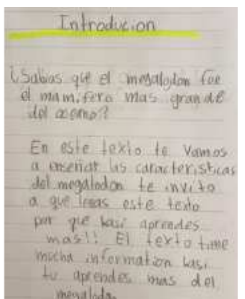 Introducion
¿Sabias que el megalodon fue
el mamifero mas grande
del oceano??
En este texto te vamos
a enseñar las caracteristicas
del megalodon te invito
a que leeas este texto
por que hasi aprendes
mas!! El texto time
mucha information hasi
tu aprendes mas del
megalodon